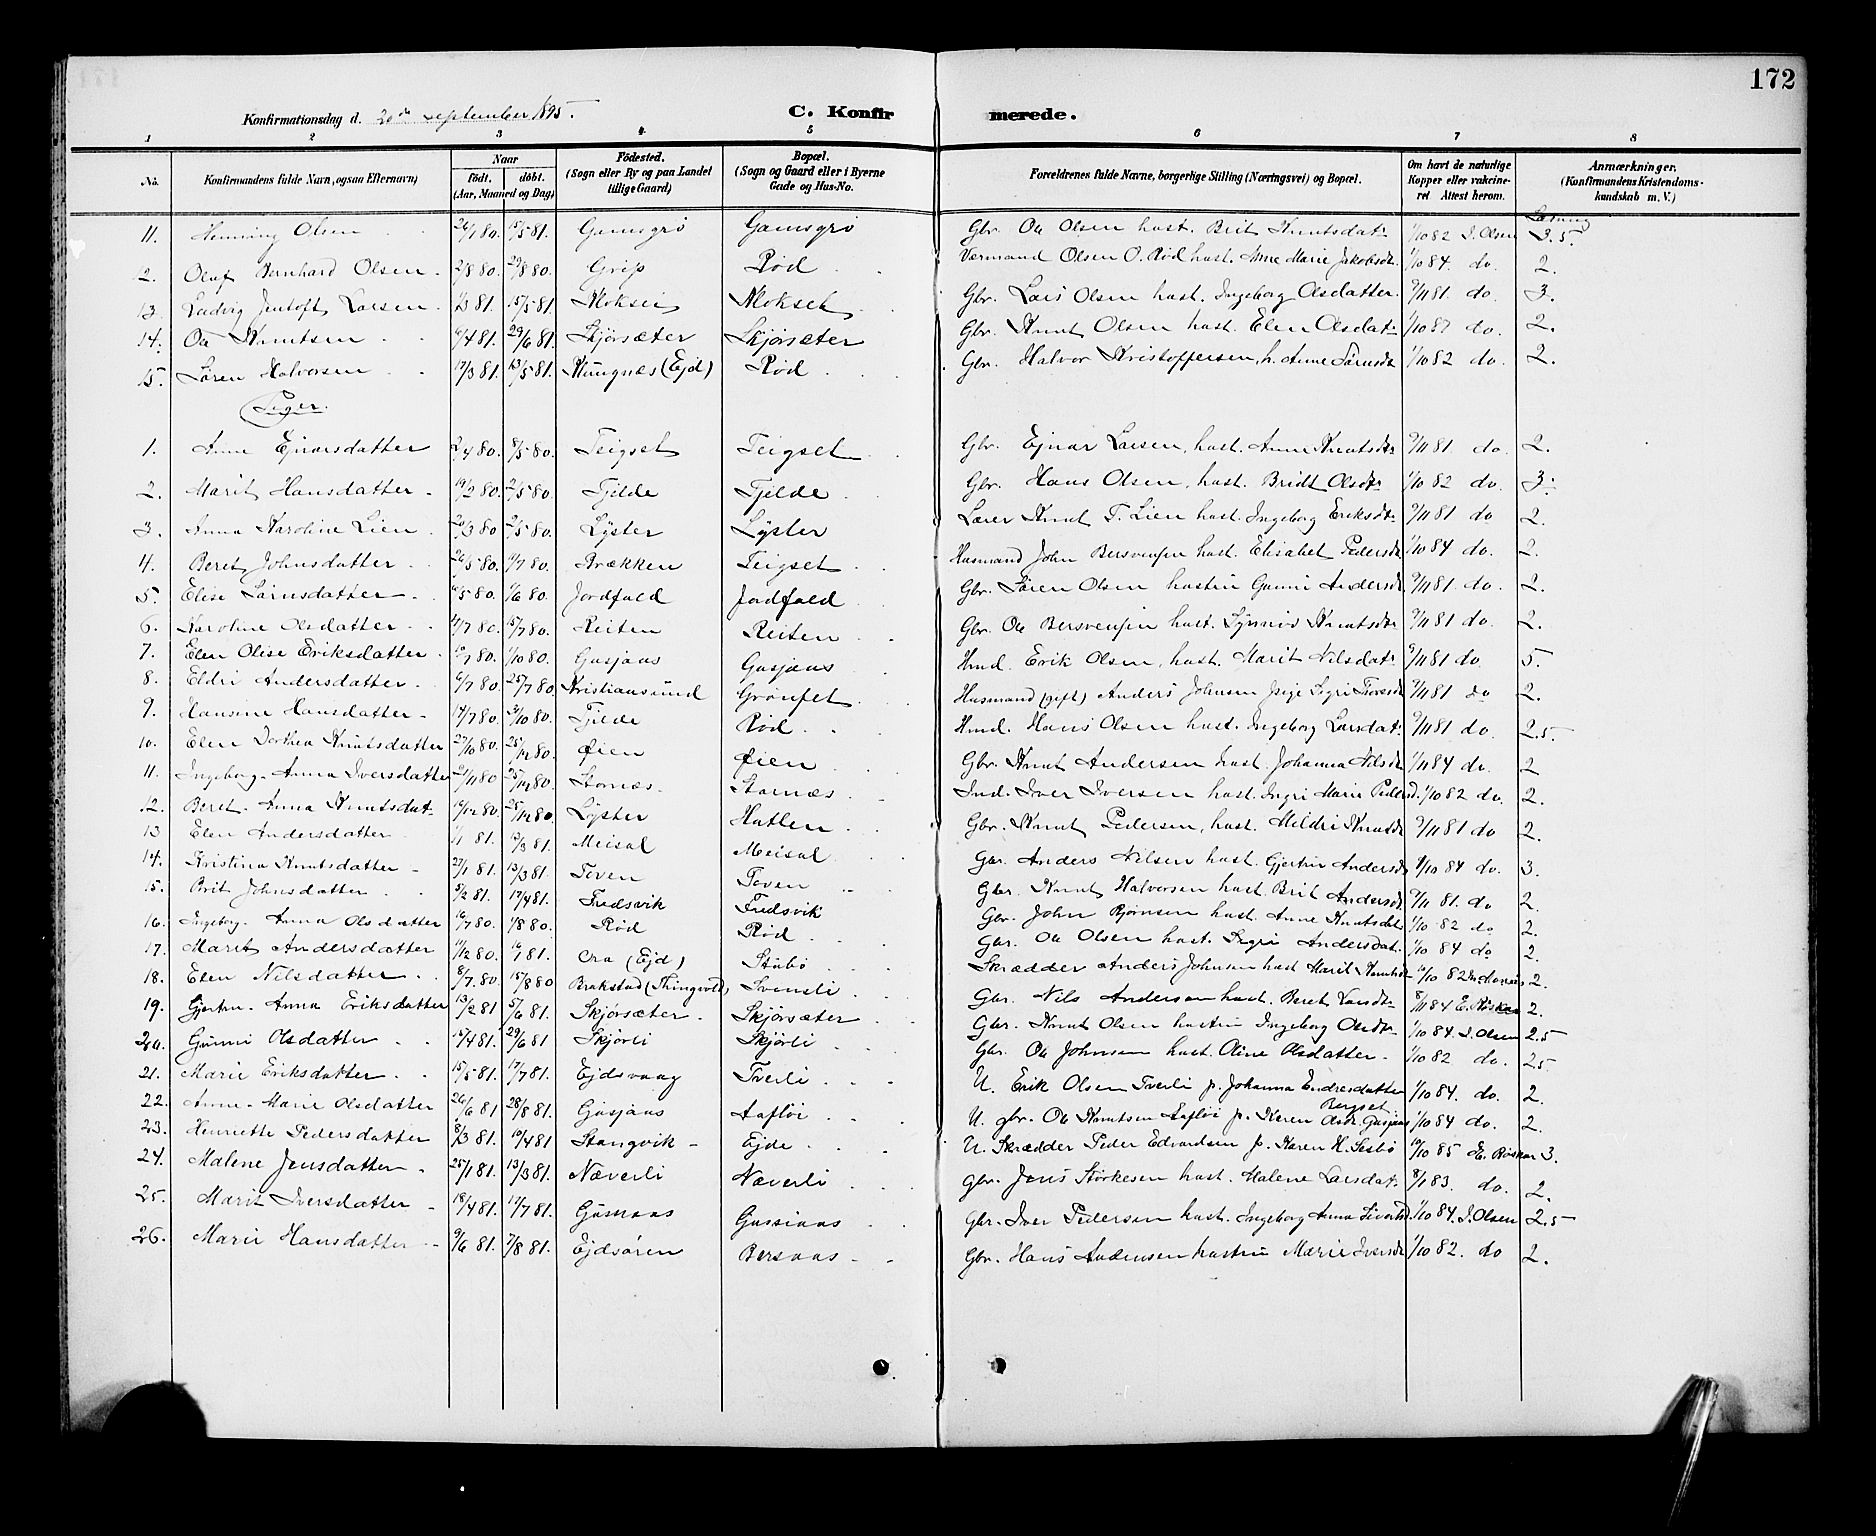 172
Konfirmationsdag d. 20de september 1895.
C. Konfirmerede.
1 2 3 4. 5 6 7 8
No. Konfirmandens fulde Navn, ogsaa Efternavn) Naar Födt. döbt. (Aar, Maaned og Dag) Födested. (Sogn eller By og paa Landet tillige Gaard) Bopæl. (Sogn og Gaard eller i Byerne Gade og Hus-No. Forældrenes fulde Navne, borgerlige Stilling (Næringsvei) og Bopæl. Om havt de naturlige Kopper eller vakcineret Attest herom. Anmærkninger. (Konfirmandens Kristendomskundskab m. V.)
Læsning
11. Henning Olsen 26/1 80. 15/5 81. Gamsgrö Gamsgrö Gbr. Ole Olsen hust. Brit Knutsdatr 1/10 82 J. Olsen 3.5.
2. Oluf Bernhard Olsen 2/8 80. 29/8 80. Grip Röd Vermand Olsen O. Röd hust. Anne Marie Jakobsdt. 1/10 84. do. 2.
13. Ludvig Jentoft Larsen 1/3 81. 15/5 81. Mokset Mokset Gbr. Lars Olsen hust. Ingeborg Olsdatter. 9/11 81 do. 3.
14. Ole Knutsen 6/4 81. 29/6 81. Skjörsæter Skjörsæter Gbr. Knut Olsen hust. Elen Olsdatr 1/10 87 do. 2.
15. Sören Halvorsen 17/3 81. 13/5 81. Kungnæs (Ejd) Röd Gbr. Halvor Kristoffersen, h. Anne Sörensdtr 1/10 82 do. 2.
Piger.
1. Anne Ejnarsdatter 2/4 80. 8/5 80. Teigset Teigset Gbr. Ejnar Larsen, hust. Anne Knutsdtr 9/11 81 do. 2.
2. Marit Hansdatter 19/2 80. 2/5 80. Tjelde Tjelde Gbr. Hans Olsen, hust. Bridt Olsdtr 1/10 82 do. 3.
3. Anna Karoline Lien 20/3 80 2/5 80. Lyster Lyster Lærer Knut T. Lien hust. Ingeborg Eriksdtr 9/11 81 do 2.
4. Beret Johnsdatter 26/5 80. 11/7 80. Brækken Teigset Husmand John Bersvensen hust. Elisabet Pedersdt 1/10 84 do. 2.
5. Elise Sörensdatter 10/5 80. 6/6 80. Jordfald Jordfald Gbr. Sören Olsen hustru Gunni Andersdt. 9/11 81 do. 2.
6. Karoline Olsdatter 4/7 80. 15/7 80. Reiten Reiten Gbr. Ole Bersvensen hust. Synnøv Knutsdtr 9/11 81 do. 2.
7. Elen Olise Eriksdatter 10/7 80. 1/10 80. Gusjaas Gusjaas Hmd. Erik Olsen, hust. Marit Nilsdatr 9/11 81 do. 5.
8. Eldri Andersdatter 6/7 80. 25/7 80. Kristiansund Grönset Husmand (gift) Anders Johnsen pige Sigri Toresdt 9/11 81 do 2.
9. Hansine Hansdatter 14/7 80. 31/10 80. Tjelde Röd Hmd. Hans Olsen hust. Ingeborg Larsdatr 9/11 81 do 2.5.
10. Elen Dorthea Knutsdatter 27/10 80. 25/12 80. Øien Øien Gbr. Knut Andersen hust. Johanna Nilsdt 1/11 84 do. 2
11. Ingeborg Anna Iversdatter 21/11 80 25/12 80. Stornæs Stornæs Ind. Iver Iversen hust. Ingri Marie Pedersd. 1/10 82 do. 2.
12. Beret Anna Knutsdatr 19/12 80. 25/12 80. Lyster Hatlen Gbr. Knut Pedersen, hust. Mildri Knutsdt 9/11 81 do 2.
13 Elen Andersdatter 1/1 81. 19/3 81. Meisal Meisal Gbr. Anders Nilsen hust. Gjertru Andersd 1/10 84 do. 3.
14. Kristina Knutsdatter 27/1 81. 13/3 81. Toven Toven Gbr. Knut Halvorsen hust. Brit Andersdt. 9/11 81. do 2.
15. Brit Johnsdatter 5/2 81. 17/4 81. Fredsvik Fredsvik Gbr. John Bjørnsen hust. Anne Knutsdt 1/10 82 do 2.
16. Ingeborg Anna Olsdatter 16/7 80. 1/8 80. Röd Röd Gbr. Ole Olsen hust. Sigri Andersdat. 1/10 84 do 2.
17. Marit Andersdatter 11/12 80. 81. Ora (Ejd) Stubö Skrædder Anders Johnsen hust Marit Knutsdt 10/10 82 2.
18. Elen Nilsdatter 8/7 80. 15/8 80 Bakstad (Thingvold) Svensli Gbr. Nils Andersen hust. Beret Larsdtr 8/11 84 E. Röskar 2.
19. Gjertru Anna Eriksdatter 13/2 81 5/6 81. Skjörsæter Skjörsæter Gbr. Knut Olsen hustru Ingeborg Olsdtr 1/10 84. J. Olsen 2.5
20. Gunni Olsdatter 15/4 81. 29/6 81 Skjörli Skjörli Gbr. Ole Johnsen hust. Oline Olsdatter 1/10 82 do. 2.5
21. Marie Eriksdatter 15/5 81. 17/7 81. Ejdsvaag Tverli U. Erik Olsen Tverli p. Johanna Endresdatter Bergset 1/10 84. do. 2.
22. Anne Marie Olsdatter 26/6 81 28/8 81. Gusjaas Aaflöi U. gbr. Ole Knutsen Aaflöi p. Karen Olsdt. Gusjaas 1/10 84 do. 2.
23. Henriette Pedersdatter 8/3 81. 10/4 81 Stangvik Ejde U. Skrædder Peder Edvardsen p. Karen H. Sesbö 10/10 85 E. Röskar 3.
24. Malene Jensdatter 25/1 81. 13/3 81. Næverli Næverli gbr. Jens Störkesen hust. Malene Larsdatr 8/1 83. do. 2.
25. Marit Iversdatter 18/4 81. 17/7 81. Gusiaas Gussiaas gbr. Iver Pedersen hust. Ingeborg Anna Sivertsd. 1/10 84. J. Olsen 2.5
26. Marie Hansdatter 9/6 81. 7/8 81. Ejdsören Bersaas Gbr. Hans Andersen hustru Marie Iversdt 1/10 82. do 2.